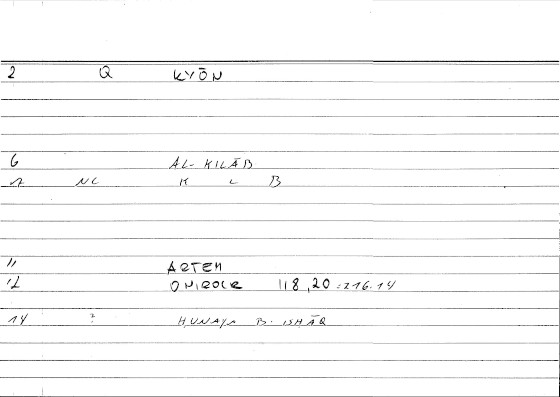 2 Q KYŌN
6 AL-KILĀB
7 NC K L B
11 ARTEM
12 ONIROCR 118,20 = 216.14
14 ? ḤUNAYN B. ISḤĀQ